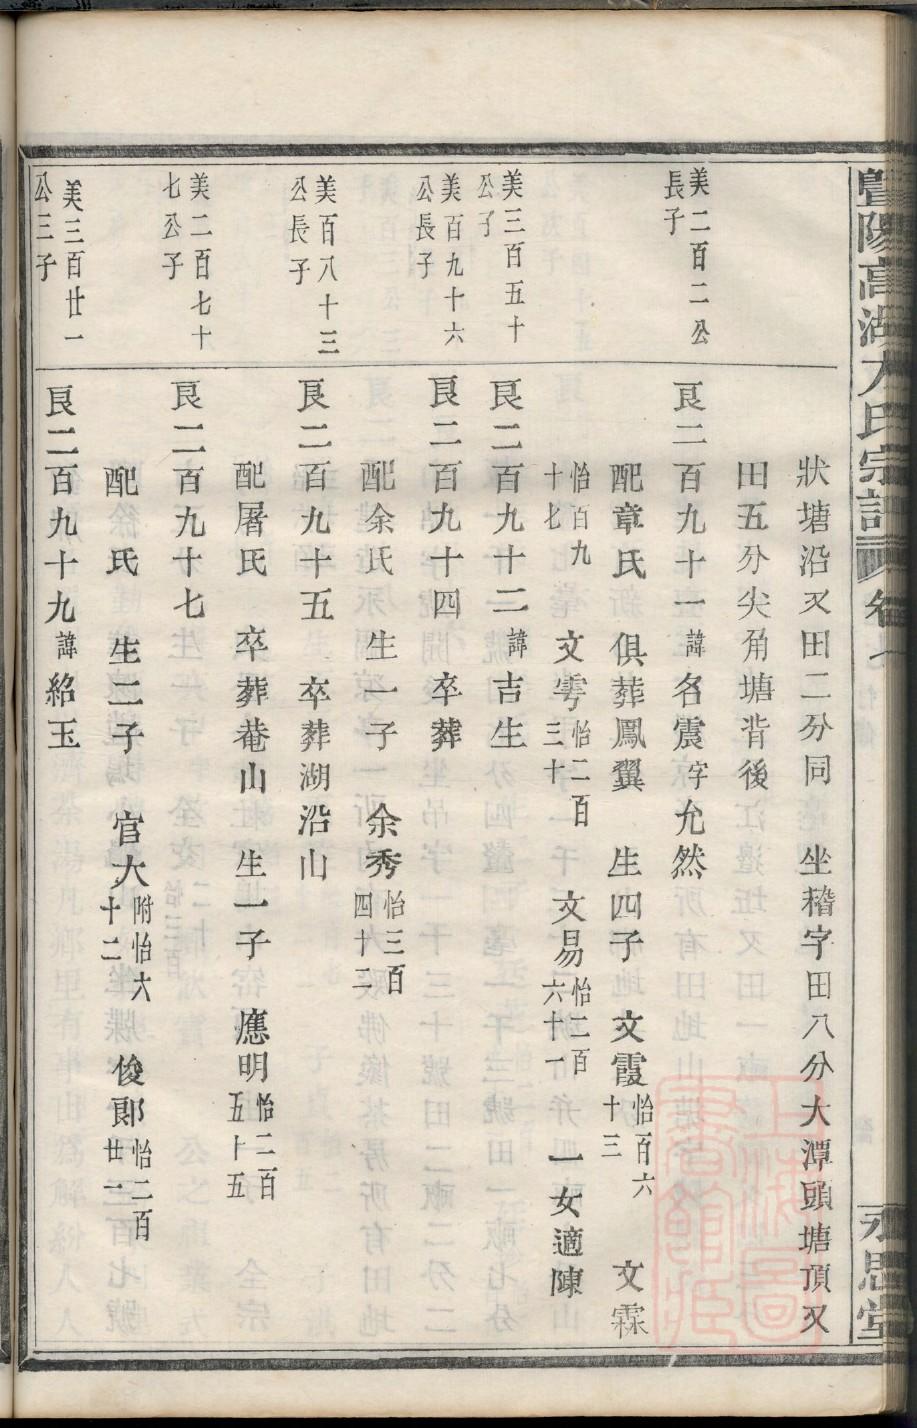 暨陽高湖方氏宗譜 卷七 永思堂
狀塘沿又田二分同 坐稽字田八分大潭頭塘頂又
田五分尖角塘背後
美二百二公
長子
艮二百九十一 諱 名震 字 允然
配章氏 俱葬鳳翼 生四子 文霞 怡百六十三 文霖
怡百九十七 文雩 怡二百三十 文易 怡二百六十一 一女適陳
美三百五十
公子
艮二百九十二 諱 吉生
美百九十六
公長子
艮二百九十四 卒葬
配余氏 生一子 余秀 怡三百四十二
美百八十三
公長子
艮二百九十五 卒葬湖沿山
配屠氏 卒葬菴山 生一子 應明 怡二百五十五
美二百七十
七公子
艮二百九十七
配氏 生二子 官大 附怡六十二 俊郎 怡二百廿一
美三百廿一
公三子
艮二百九十九 諱 紹玉